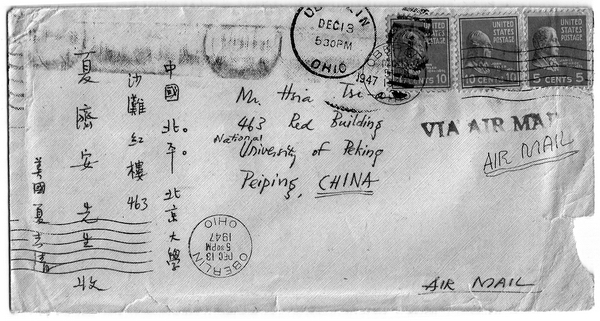 OBERLIN
DEC 13
5 30PM
1947
OHIO
UNITED STATES POSTAGE
10
UNITED STATES POSTAGE
10 CENTS 10
UNITED STATES POSTAGE
5 CENTS 5
VIA AIR MAIL
AIR MAIL
Mr. Hsia Tsi-an
463 Red Building
National
University of Peking
Peiping, CHINA
AIR MAIL
中國 北平。北京大學
沙灘紅樓463
夏濟安先生收
美國夏志清
OBERLIN
DEC 13
5 30PM
1947
OHIO